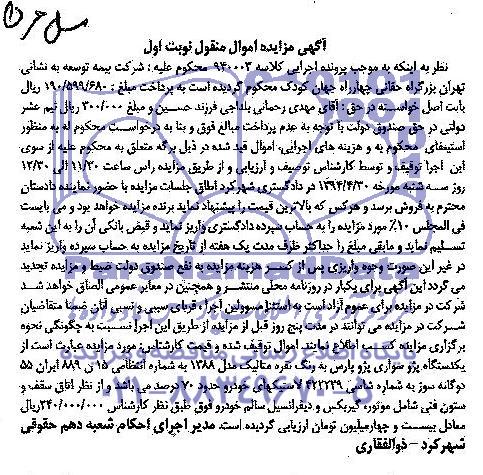 آگهی مزایده اموال منقول نوبت اول
نظر به اینکه به موجب پرونده اجرایی کلاسه ۹۴۰۰۰۳ محکوم علیه : شرکت بیمه توسعه به نشانی
تهران بزرگراه حقانی چهارراه جهان کودک محکوم گردیده است به پرداخت مبلغ : ۱۹۰/۵۹۹/۶۸۰ ریال
بابت اصل خواسته در حق : آقای مهدی رحمانی بلداجی فرزند حسین و مبلغ ۳۰۰/۰۰۰ ریال نیم عشر
دولتی در حق صندوق دولت با توجه به عدم پرداخت مبالغ فوق و بنا به درخواست محکوم له به منظور
استیفای محکوم به و هزینه های اجرایی، اموال قید شده در ذیل برگه متعلق به محکوم علیه از سوی
این اجرا توقیف و توسط کارشناس توصیف و ارزیابی و از طریق مزایده راس ساعت ۱۱/۳۰ الی ۱۲/۳۰
روز سه شنبه مورخه ۱۳۹۴/۴/۳۰ در دادگستری شهرکرد اطاق جلسات مزایده با حضور نماینده دادستان
محترم به فروش برسد و هرکس که بالاترین قیمت را پیشنهاد نماید برنده مزایده خواهد بود و می بایست
فی المجلس ۱۰٪ مورد مزایده را به حساب سپرده دادگستری واریز نماید و قبض بانکی آن را به این شعبه
تسلیم نماید و مابقی مبلغ را حداکثر ظرف مدت یک هفته از تاریخ مزایده به حساب سپرده واریز نماید
در غیر این صورت وجوه واریزی پس از کسر هزینه مزایده به نفع صندوق دولت ضبط و مزایده تجدید
می گردد این آگهی برای یکبار در روزنامه محلی منتشر و همچنین در معابر عمومی الصاق خواهد شد
شرکت در مزایده برای عموم آزاد است به استثنا مسوولین اجراء قربای سببی و نسبی آنان ضمنا متقاضیان
شرکت در مزایده می توانند در مدت پنج روز قبل از مزایده از طریق این اجرا نسبت به چگونگی نحوه
برگزاری مزایده کسب اطلاع نمایند. اموال توقیف شده و قیمت کارشناسی : مورد مزایده عبارت است از
یکدستگاه پژو سواری پژو پارس به رنگ نقره متالیک مدل ۱۳۸۸ به شماره انتظامی ۱۵ ن ۸۸۹ ایران ۵۵
دوگانه سوز به شماره شاسی ۴۲۲۳۳۹ لاستیکهای خودرو حدود ۷۰ درصد می باشد و از نظر اتاق سقف و
ستون فنی شامل موتور، گیربکس و دیفرانسیل سالم خودرو فوق طبق نظر کارشناس ۲۴۰/۰۰۰/۰۰۰ ریال
معادل بیست و چهارمیلیون تومان ارزیابی گردیده است. مدیر اجرای احکام شعبه دهم حقوقی
شهرکرد - ذوالفقاری